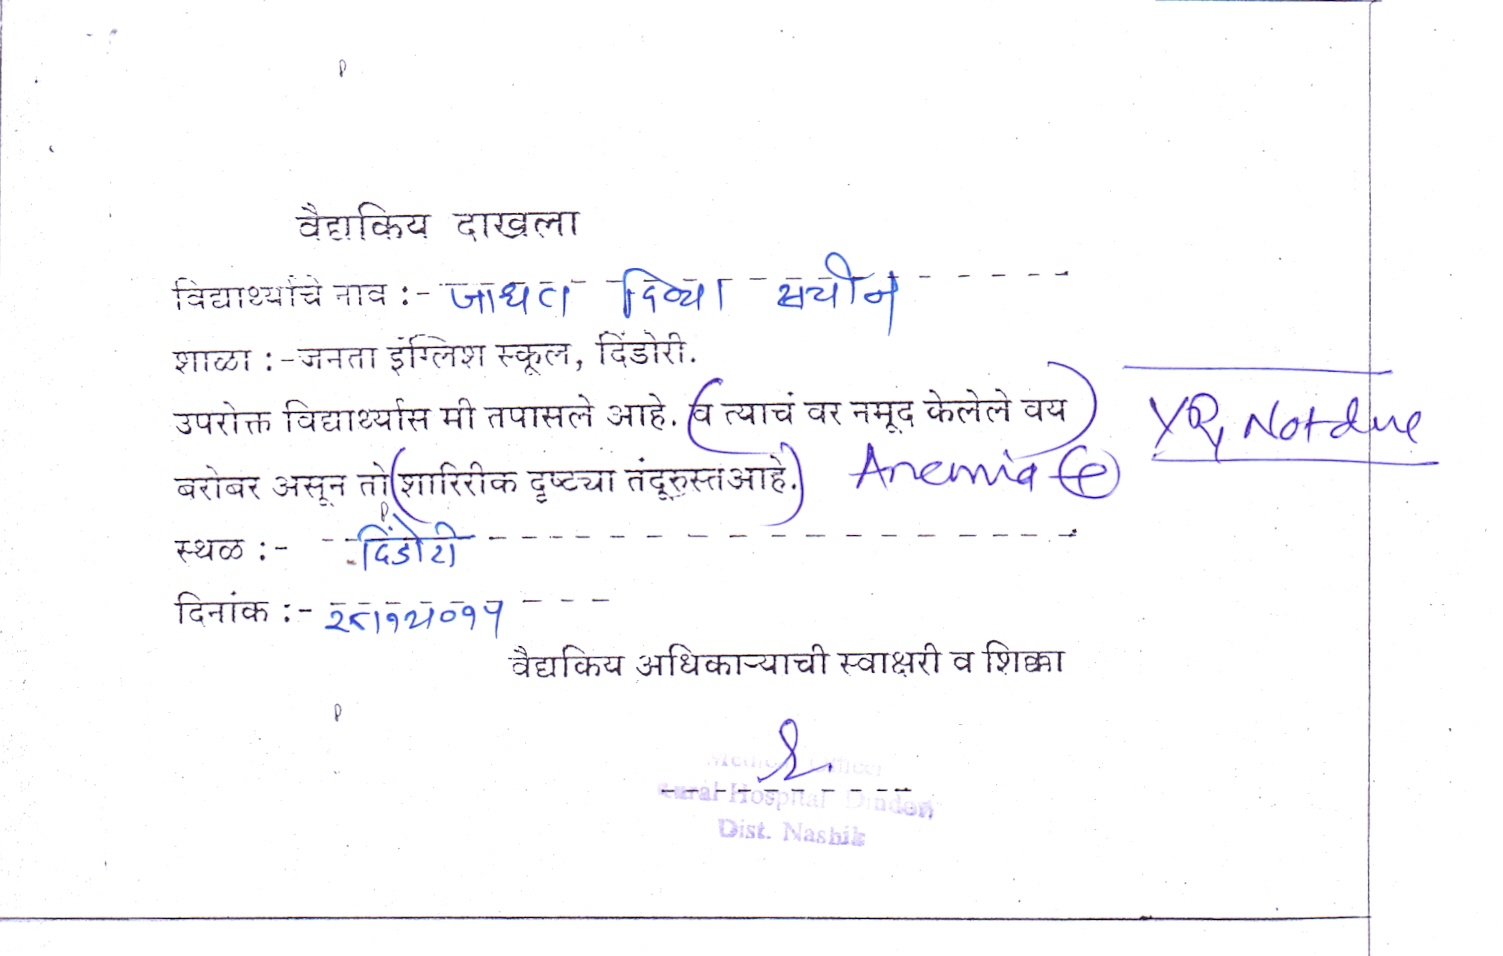 वैद्यकिय दाखला
विद्यार्थ्याचे नाव :- जाधव दिव्या सचीन
शाळा :- जनता इंग्लिश स्कूल, दिंडोरी.
उपरोक्त विद्यार्थ्यास मी तपासले आहे. (व त्याचं वर नमूद केलेले वय)
बरोबर असून तो (शारिरीक दृष्टया तंदूरुस्त आहे.) Anemia
Not due
स्थळ :- दिंडोरी
दिनांक :-
वैद्यकिय अधिकाऱ्याची स्वाक्षरी व शिक्का
Medical Officer
Rural Hospital Dindori
Dist. Nashik